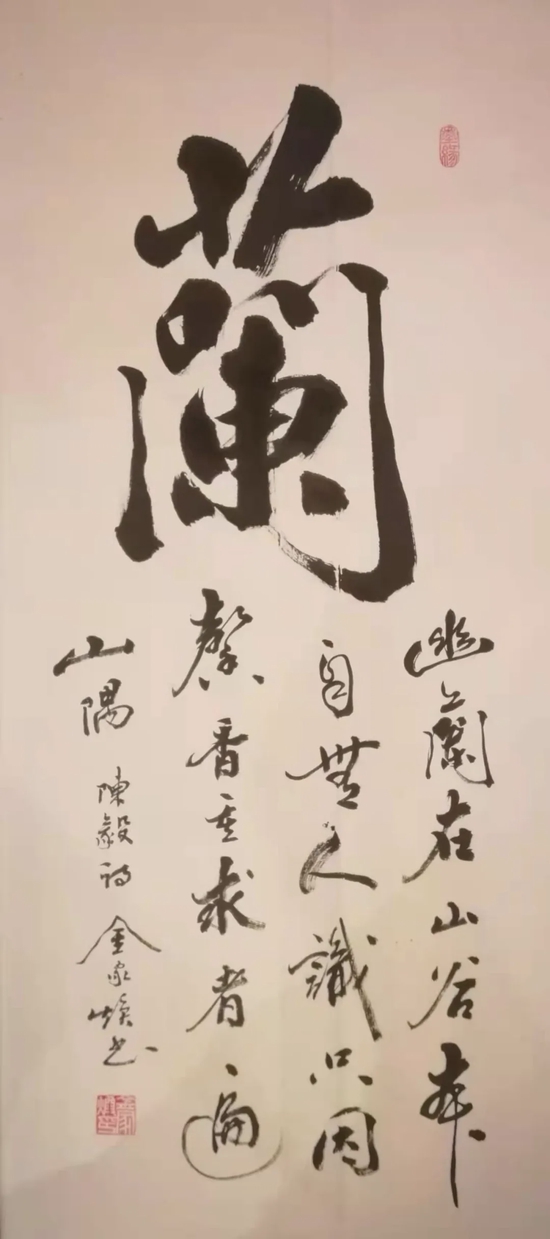 蘭
幽蘭在山谷本
自無人識只因
馨香重求者遍
山隅 陳毅詩 金家 书